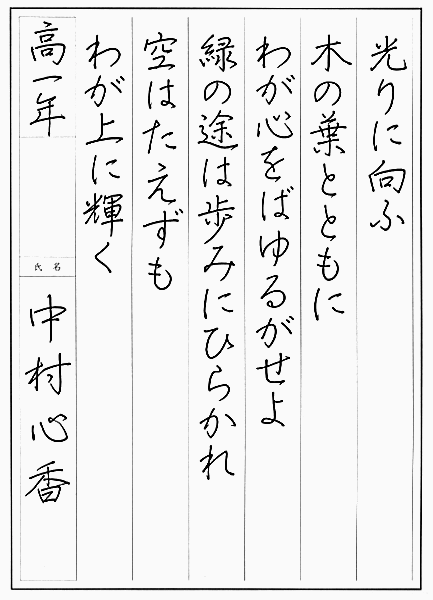 光りに向ふ
木の葉とともに
わが心をばゆるがせよ
緑の途は歩みにひらかれ
空はたえずも
わが上に輝く
高一年
氏名
中村心香